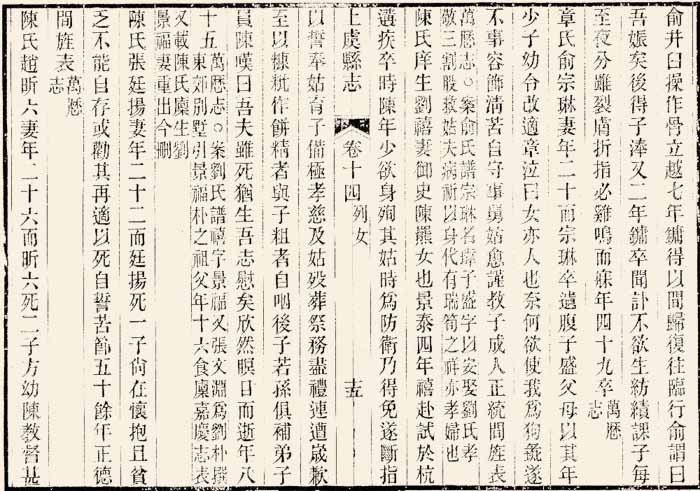 俞井臼操作骨立越七年鏞得以間歸復往臨行俞謂曰
吾娠矣後得子溱又二年鏞卒聞訃不欲生紡績課子每
至夜分雖裂膚折指必雞鳴而寐年四十九卒萬厯志
章氏俞宗琳妻年二十而宗琳卒遺腹子盛父母以其年
少子幼令改適章泣曰女亦人也奈何欲使我爲狗彘遂
不事容飾清苦自守事舅姑愈謹教子成人正統間旌表
萬厯志○案俞氏譜宗琳名瑋子盛字以安娶劉氏孝
敬三割股救姑夫病祈以身代有瑞筍之祥亦孝婦也
陳氏庠生劉禧妻御史陳羆女也景泰四年禧赴試於杭
遘疾卒時陳年少欲身殉其姑時爲防衛乃得免遂斷指
上虞縣志 卷十四 列女 十五
以誓奉姑育子備極孝慈及姑殁葬祭務盡禮連遭歲歉
至以糠粃作餅精者與子粗者自咽後子若孫俱補弟子
員陳嘆曰吾夫雖死猶生吾志慰矣欣然瞑目而逝年八
十五萬厯志○案劉氏譜禧字景福又張文淵爲劉朴撰
東郊別墅引景福朴之祖父年十六食廩嘉慶志表
又載陳氏廩生劉
景福妻重出今刪
陳氏張廷揚妻年二十二而廷揚死一子尚在懷抱丑貧
之不能自存或勸其再適以死自誓苦節五十餘年正德
間旌表萬厯志
陳氏趙昕六妻年二十六而昕六死二子方幼陳教督甚